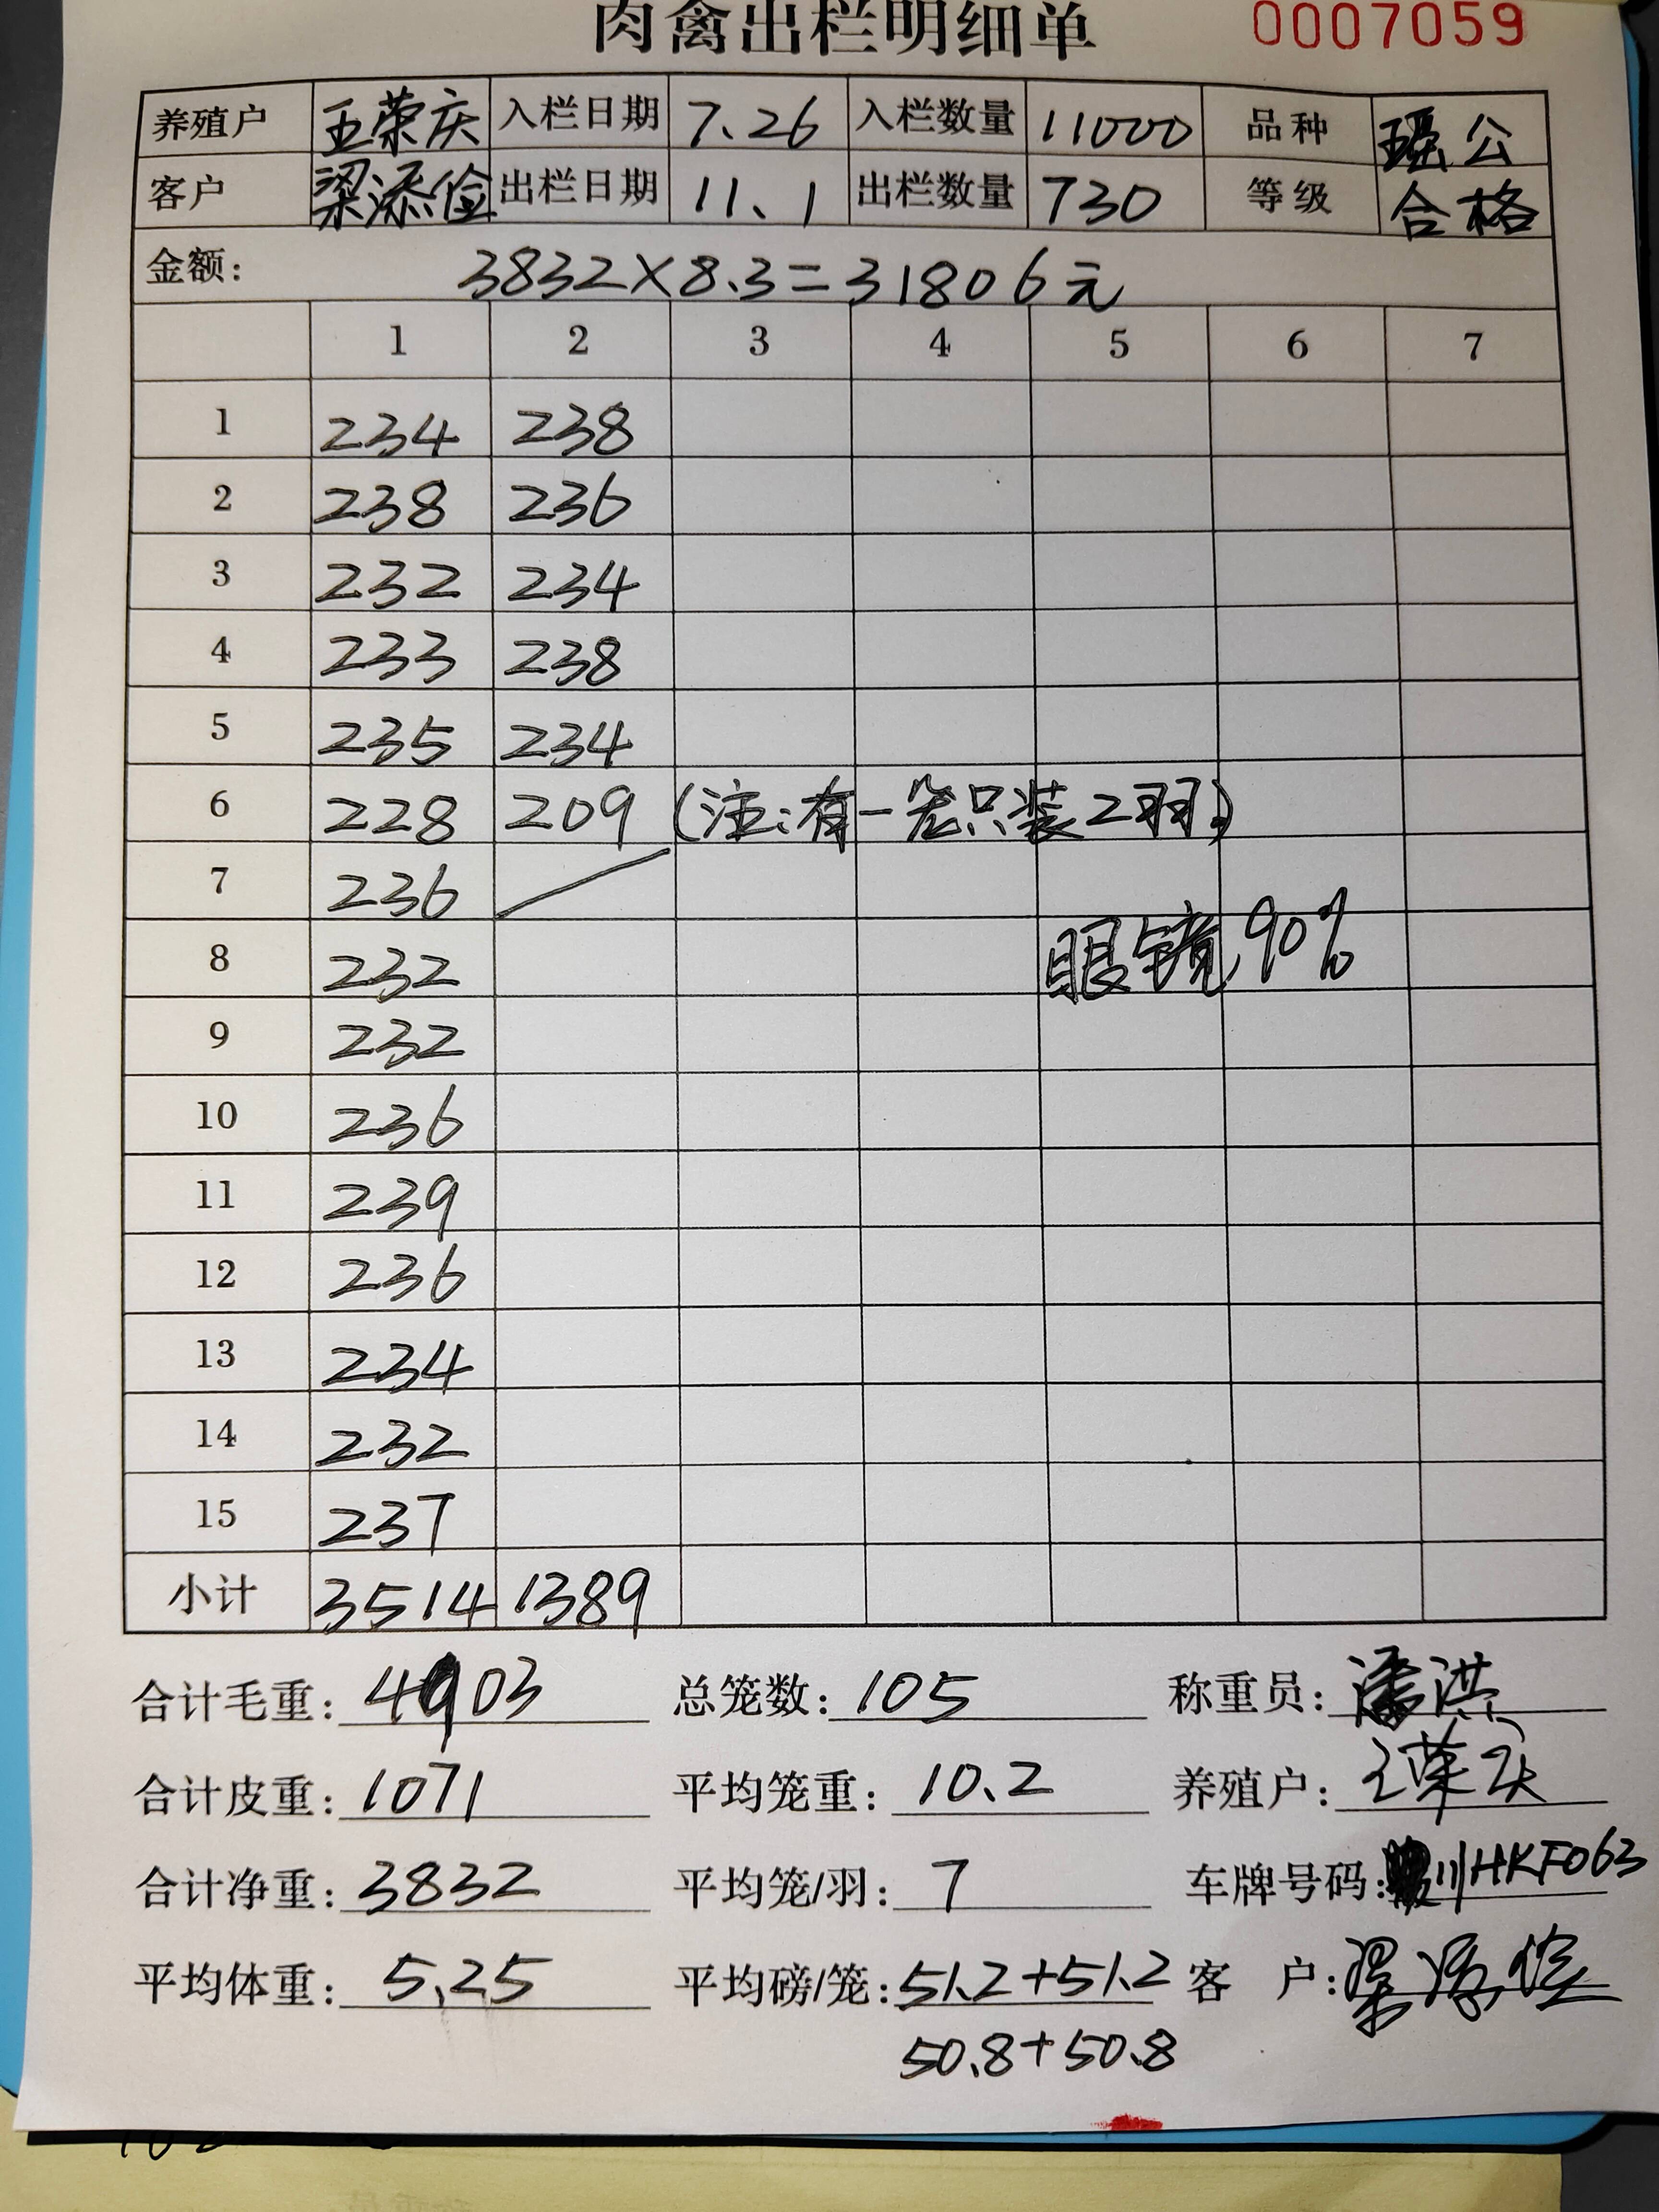 肉禽出栏明细单 0007059
养殖户 王荣庆 入栏日期 7.26 入栏数量 11000 品种 瑶公
客户 梁添俭 出栏日期 11.1 出栏数量 730 等级 合格
金额: 3832×8.3=31806元
1 2 3 4 5 6 7
1 234 238
2 238 236
3 232 234
4 233 238
5 235 234
6 228 209 (注:有一笼只装2羽)
7 236
8 232 眼镜90%
9 232
10 236
11 239
12 236
13 234
14 232
15 237
小计 3514 1389
合计毛重: 4903 总笼数: 105 称重员: 潘洪
合计皮重: 1071 平均笼重: 10.2 养殖户: 王荣庆
合计净重: 3832 平均笼/羽: 7 车牌号码: 川HKF063
平均体重: 5.25 平均磅/笼: 51.2+51.2 客 户:
50.8+50.8